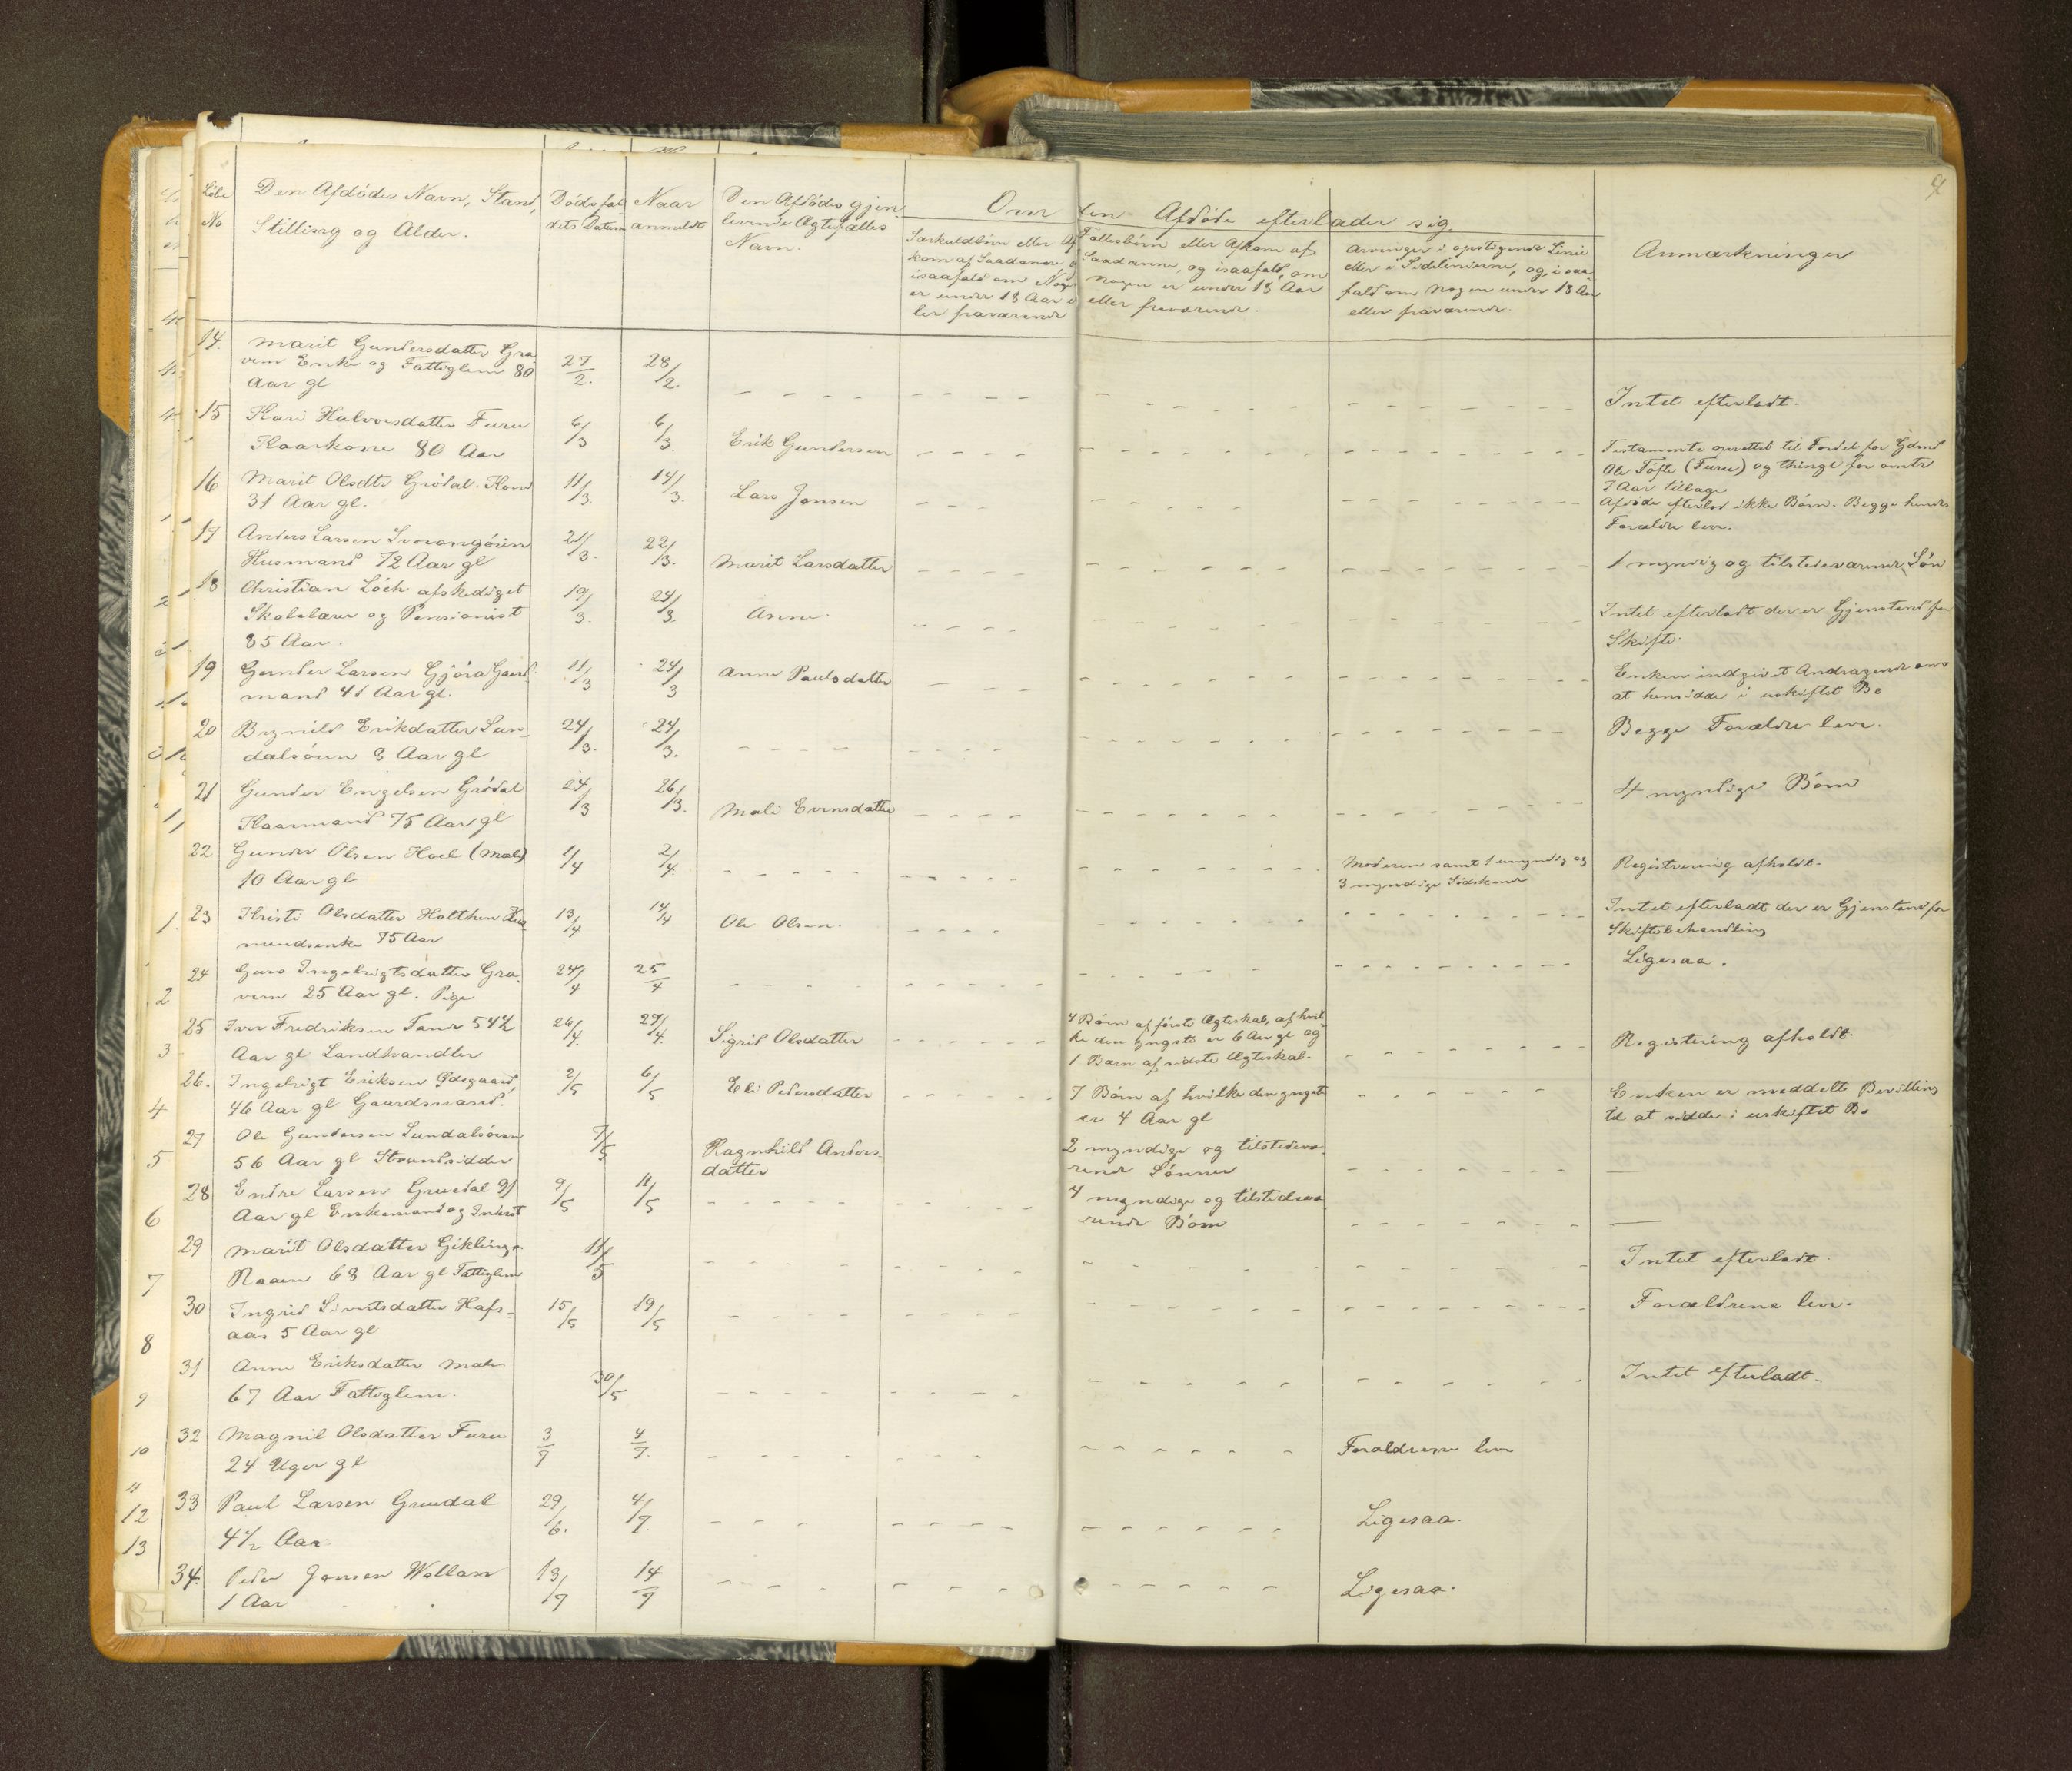 Løbe No
Den Afdødes Navn, Stand,
Stilling og Alder.
Dødsfal
dets Datum
Naar
anmeldt
Den Afdødes gjen
levende Ægtefælles
Navn.
Om den Afdøde efterlader sig.
Særkuldbørn eller Af
kom af Saadanne o
isaafald om Nog
er under 18 Aar e
ler fraværende
Fællesbørn eller Afkom af
Saadanne, og isaafald, om
nogen er under 18 Aar
eller fraværende.
Arvinger i opstigende Linie
eller i Sidelinierne, og, i saa
fald om nogen under 18 Aar
eller fraværende.
Anmærkninger
14. Marit Gundersdatter Gra
vem Enke og Fattiglem 80
Aar gl
27/2. 28/2.
Intet efterladt.
15 Kari Halvorsdatter Furu
Kaarkone 80 Aar
6/3 6/3. Erik Gundersen
Testamente oprettet til Fordel for Gdmd
Ole Tofte (Furu) og thingl for omtr
7 Aar tilbage
16 Marit Olsdtr Grødal. Kone
31 Aar gl.
11/3. 14/3. Lars Jonsen
Afdøde efterlod ikke Børn. Begge hendes
Forældre lever.
17 Anders Larsen
Husmand 72 Aar gl
21/3. 22/3. Marit Larsdatter
1 myndig og tilstedeværende Søn
18 Christian Löch afskediget
Skolelærer og Pensionist
85 Aar.
19/3. 24/3. Anne
Intet efterladt der er Gjenstand for
Skifte.
19 Gunder Larsen Gjøra Gaard
mand 41 Aar gl.
11/3 24/3 Anne Paulsdatter
Enken indgivet Andragende om
at hensidde i uskiftet Bo
20 Brynild Erikdatter Sun-
dalsøren 8 Aar gl
24/3. 24/3.
Begge Forældre lever.
21 Gunder Engelsen Grødal
Kaarmand 75 Aar gl
24/3 26/3. Mali Evensdatter
4 myndige Børn
22 Gunder Olsen Hoel (Mæle)
10 Aar gl
1/4 2/4
Moderen samt 1 umyndig og
3 myndige Sødskende
Registrering afholdt.
23 Kristi Olsdatter Holthen Hus
mandsenke 75 Aar
13/4 14/4 Ole Olsen.
Intet efterladt der er Gjenstand for
Skiftebehandling
24 Guro Ingebrigtsdatter Gra
vem 25 Aar gl. Pige
24/4 25/4
Ligesaa.
25 Iver Fredriksen Fanre 54 1/2
Aar gl Landhandler
26/4. 27/4. Sigrid Olsdatter
4 Børn af første Ægteskab, af hvil-
ke den yngste er 6 Aar gl og
1 Barn af sidste Ægteskab.
Registering afholdt.
26. Ingebrigt Eriksen Ødegaard,
46 Aar gl Gaardsmand.
2/5 6/5 Eli Pedersdatter
7 Børn af hvilke den yngste
er 4 Aar gl
Enken er meddelt Bevilling
til at sidde i uskiftet Bo
27 Ole Gundersen Sundalsøren
56 Aar gl Strandsidder
7/5
Ragnhild Anders-
datter
2 myndige og tilstedevæ-
rende Sønner
28 Endre Larsen Gruedal 91
Aar gl Enkemand og Inderst
9/5 11/5
4 myndige og tilstedevæ-
rende Børn
29 Marit Olsdatter Gikling
Raaen 68 Aar gl Fattiglem
11/5
Intet efterladt.
30 Ingrid Sivertsdatter Hafs-
aas 5 Aar gl
15/5 19/5
Forældrene lever.
31 Anne Eriksdatter Mæle
67 Aar Fattiglem.
30/5
Intet efterladt.
32 Magnil Olsdatter Furu
24 Uger gl
3/7 4/7.
Forældrene lever
33 Paul Larsen Gruudal
4 1/2 Aar
29/6. 4/7.
Ligesaa.
34. Peder Jonsen Wollan
1 Aar
13/7 14/7
Ligesaa.
1.
2
3
4
5
6
7
8
9
10
11
12
13